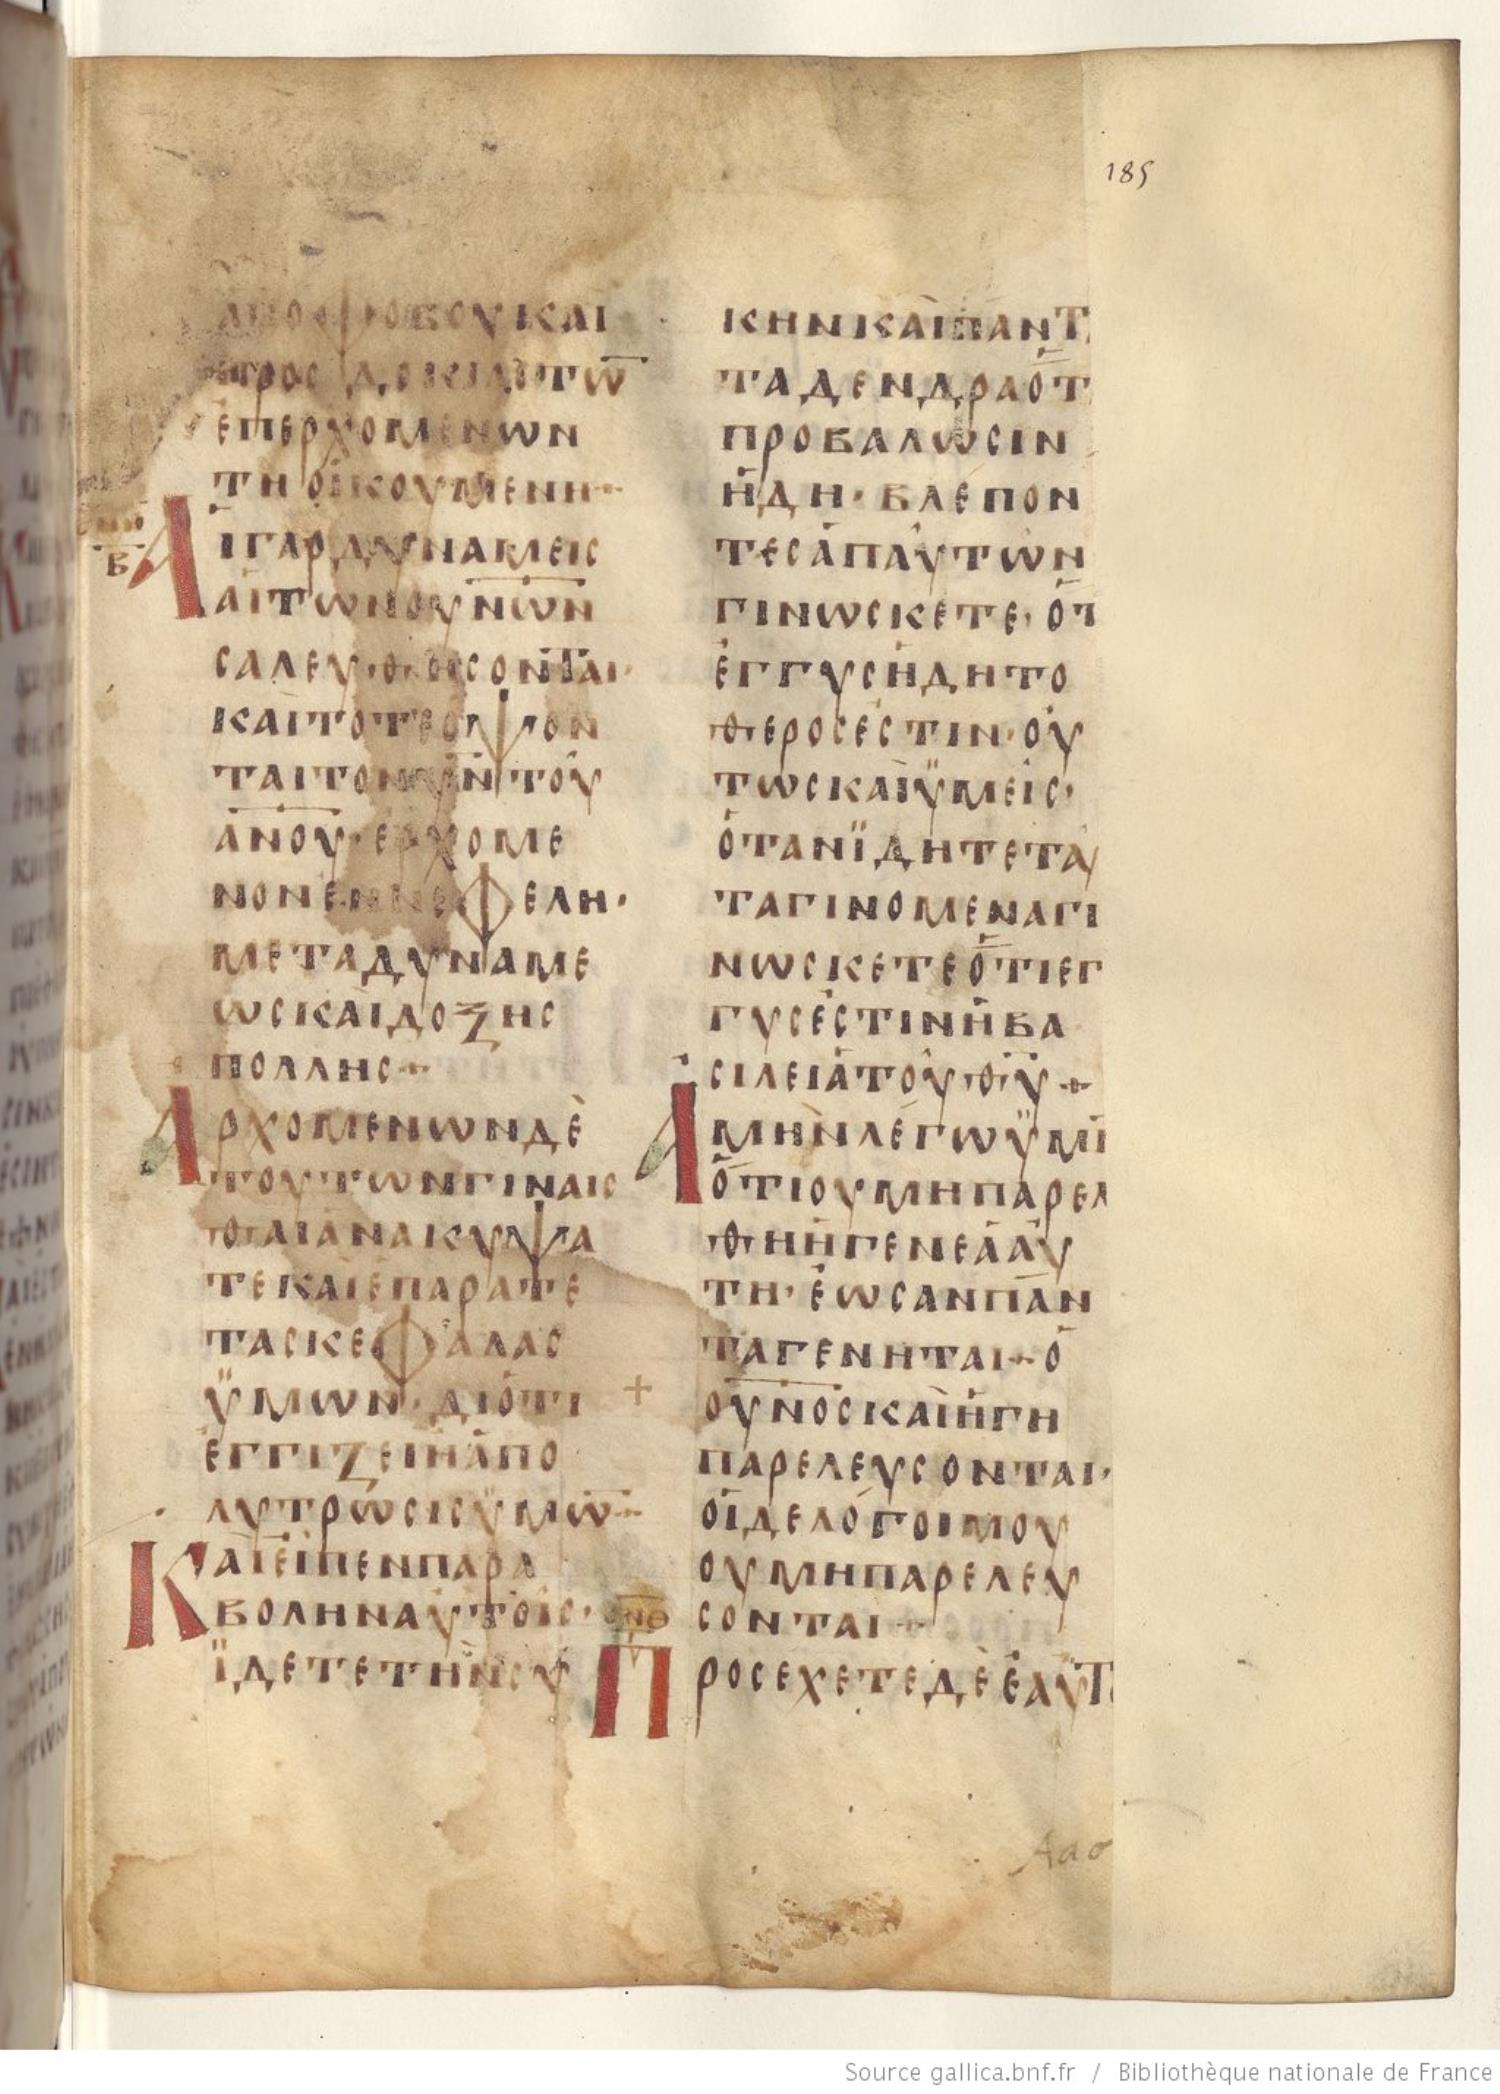 185
ΑΠΟΦΟΒΟΥΚΑΙ
ΠΡΟCΔΟΚΙΑCΤΩ̅
ἐΠΕΡΧΟΜΕΝΩΝ
ΤΗΟΙΚΟΥΜΕΝΗ·
ΑΙΓΑΡΔΥΝΑΜΕΙC
ΑΙΤΩΝΟΥΝΩΝ
CΑΛΕΥΘΗCΟΝΤΑΙ·
ΚΑΙΤΟΤΕΟΨΟΝ
ΤΑΙΤΟΝΥΝΤΟΥ
ΑΝΟΥ·ΕΡΧΟΜΕ
ΝΟΝΕΝΝΕΦΕΛΗ·
ΜΕΤΑΔΥΝΑΜΕ
ΩCΚΑΙΔΟΞΗC
ΠΟΛΛΗC
ΑΡΧΟΜΕΝΩΝΔὲ
ΤΟΥΤΩΝΓΙΝΑΙC
ΘΑΙΑΝΑΚΥΨΑ
ΤΕΚΑΙΕΠΑΡΑΤΕ
ΤΑCΚΕΦΑΛΑC
ΫΜΩΝ·ΔΙΟΤΙ
ΕΓΓΙΖΕΙΗΑΠΟ
ΛΥΤΡΩCΙCΫΜΩ̅
ΚΑΙΕΙΠΕΝΠΑΡΑ
ΒΟΛΗΝΑΥΤΟΙC·
ΪΔΕΤΕΤΗΝCΥ
Β
ΚΗΝΚΑΙΠΑΝΤ
ΤΑΔΕΝΔΡΑΟΤ
ΠΡΟΒΑΛΩCΙΝ
ΗΔΗ·ΒΛΕΠΟΝ
ΤΕCΑΠΑΥΤΩΝ
ΓΙΝΩCΚΕΤΕ·ΟΤ
ΕΓΓΥCΗΔΗΤΟ
ΘΕΡΟCΕCΤΙΝ·ΟΥ
ΤΩCΚΑΙΫΜΕΙC·
ΟΤΑΝΪΔΗΤΕΤΑΥ
ΤΑΓΙΝΟΜΕΝΑΓΙ
ΝΩCΚΕΤΕΟΤΙΕΓ
ΓΥCΕCΤΙΝΗΒΑ
CΙΛΕΙΑΤΟΥΘΥ+
ΑΜΗΝΛΕΓΩΫΜΙ
ΟΤΙΟΥΜΗΠΑΡΕΛ
ΘΗΗΓΕΝΕΑΑΥ
ΤΗ·ΕΩCΑΝΠΑΝ
ΤΑΓΕΝΗΤΑΙ+Ο
ΟΥΝΟCΚΑΙΗΓΗ
ΠΑΡΕΛΕΥCΟΝΤΑΙ·
ΟΙΔΕΛΟΓΟΙΜΟΥ
ΟΥΜΗΠΑΡΕΛΕΥ
CΟΝΤΑΙ+
ΠΡΟCΕΧΕΤΕΔὲΕΑΥΤ
Source gallica.bnf.fr / Bibliothèque nationale de France